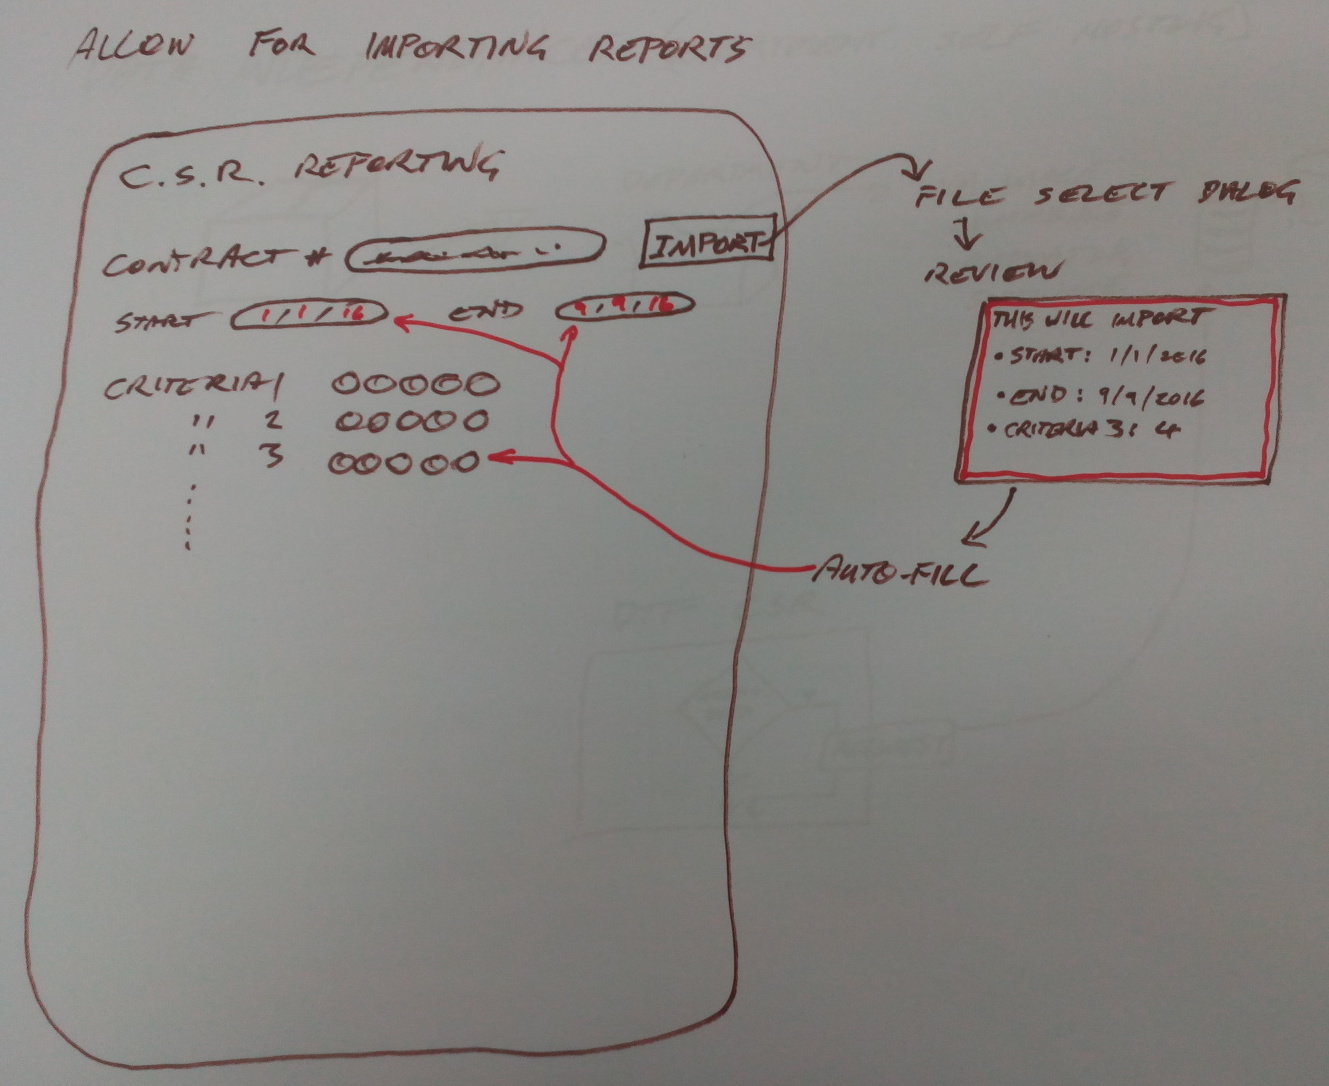 ALLOW FOR IMPORTING REPORTS
C.S.R. REPORTING
CONTRACT # IMPORT
START 1/1/16 END 9/9/16
CRITERIA 1
" 2
" 3
FILE SELECT DIALOG
REVIEW
THIS WILL IMPORT
• START: 1/1/2016
• END: 9/9/2016
• CRITERIA 3: 4
AUTO-FILL